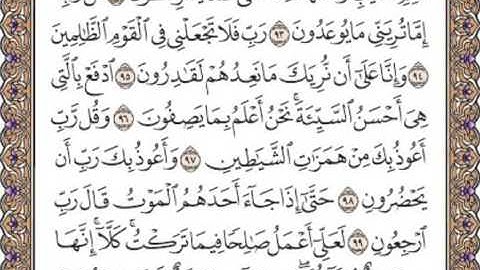 إِمَّا تُرِيَنِّي مَا يُوعَدُونَ ٩٣ رَبِّ فَلَا تَجْعَلْنِي فِي الْقَوْمِ الظَّالِمِينَ
٩٤ وَإِنَّا عَلَىٰ أَن نُّرِيَكَ مَا نَعِدُهُمْ لَقَادِرُونَ ٩٥ ادْفَعْ بِالَّتِي
هِيَ أَحْسَنُ السَّيِّئَةَ ۚ نَحْنُ أَعْلَمُ بِمَا يَصِفُونَ ٩٦ وَقُل رَّبِّ
أَعُوذُ بِكَ مِنْ هَمَزَاتِ الشَّيَاطِينِ ٩٧ وَأَعُوذُ بِكَ رَبِّ أَن
يَحْضُرُونِ ٩٨ حَتَّىٰ إِذَا جَاءَ أَحَدَهُمُ الْمَوْتُ قَالَ رَبِّ
ارْجِعُونِ ٩٩ لَعَلِّي أَعْمَلُ صَالِحًا فِيمَا تَرَكْتُ ۚ كَلَّا ۚ إِنَّهَا